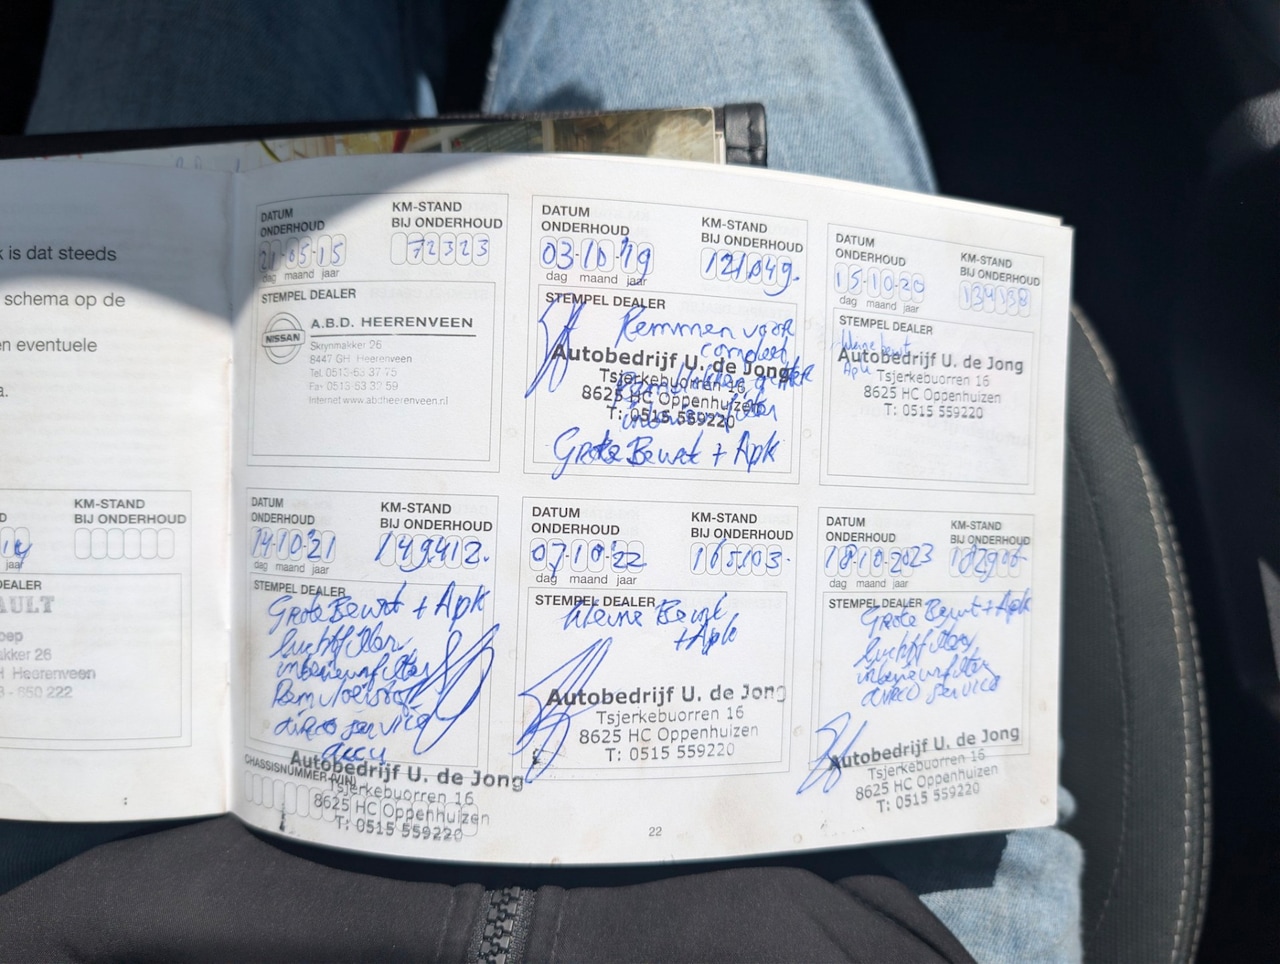 k is dat steeds
schema op de
en eventuele
a.
KM-STAND
BIJ ONDERHOUD
jaar
DEALER
AULT
akker 26
H Heerenveen
- 650 222
DATUM
ONDERHOUD
KM-STAND
BIJ ONDERHOUD
21-05-15
72323
dag maand jaar
STEMPEL DEALER
NISSAN
A.B.D. HEERENVEEN
Skrynmakker 26
8447 GH Heerenveen
Tel. 0513-63 37 75
Fax 0513-63 32 59
Internet www.abdheerenveen.nl
DATUM
ONDERHOUD
KM-STAND
BIJ ONDERHOUD
03-10-'19
121.049.
dag maand jaar
STEMPEL DEALER
Remmen voor
compleet
Autobedrijf U. de Jong
Tsjerkebuorren 16
8625 HC Oppenhuizen
T: 0515 559220
Grote Beurt + Apk
DATUM
ONDERHOUD
KM-STAND
BIJ ONDERHOUD
15-10-20
134138
dag maand jaar
STEMPEL DEALER
kleine beurt
Apk
Autobedrijf U. de Jong
Tsjerkebuorren 16
8625 HC Oppenhuizen
T: 0515 559220
DATUM
ONDERHOUD
KM-STAND
BIJ ONDERHOUD
14-10-21
149.412.
dag maand jaar
STEMPEL DEALER
Grote Beurt + Apk
luchtfilter
interieurfilter
Remvloeistof
airco service
accu
Autobedrijf U. de Jong
CHASSISNUMMER (VIN)
Tsjerkebuorren 16
8625 HC Oppenhuizen
T: 0515 559220
DATUM
ONDERHOUD
KM-STAND
BIJ ONDERHOUD
07-10-22
165.103.
dag maand jaar
STEMPEL DEALER
kleine Beurt
+ Apk
Autobedrijf U. de Jong
Tsjerkebuorren 16
8625 HC Oppenhuizen
T: 0515 559220
DATUM
ONDERHOUD
KM-STAND
BIJ ONDERHOUD
18-10-2023
dag maand jaar
STEMPEL DEALER
Grote Beurt + Apk
luchtfilter
interieurfilter
airco service
Autobedrijf U. de Jong
Tsjerkebuorren 16
8625 HC Oppenhuizen
T: 0515 559220
22